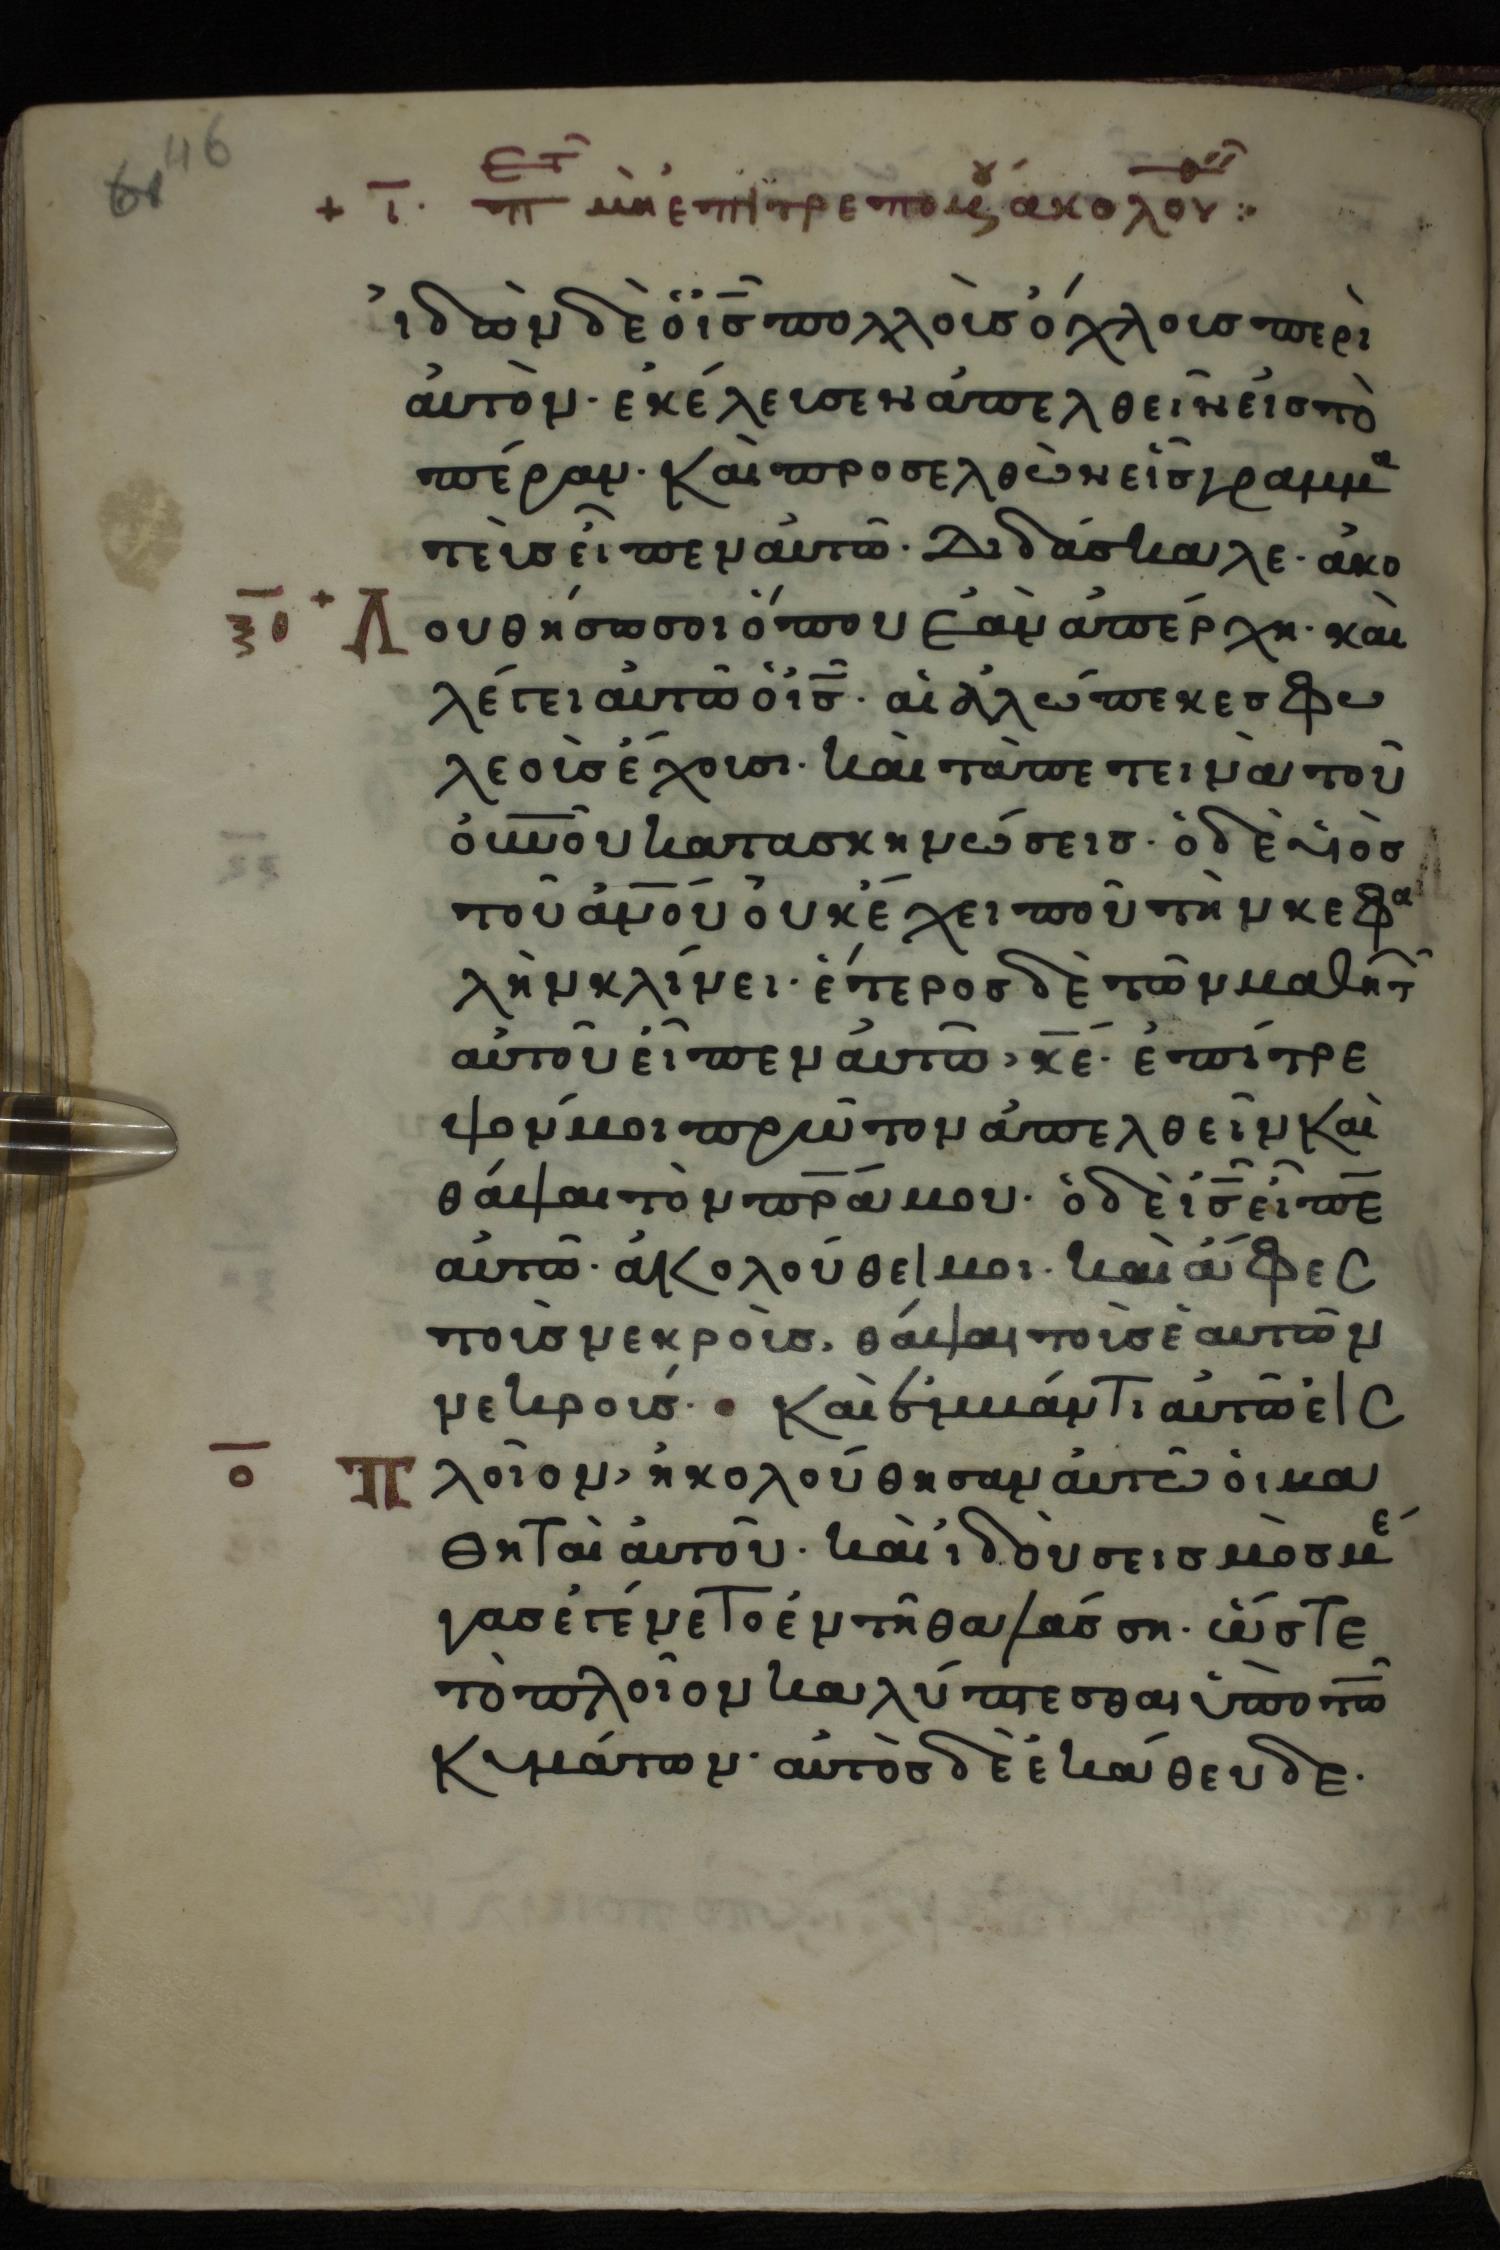 46
+ ῑ. π ετ μὴ ἐπιτρεπομου ἀκολουθ :
ἰδὼν δὲ ὁ ἰς̄ πολλοὺσ ὄχλουσ περὶ
ἀυτὸν· ἐκέλευσεν ἀπελθεῖν ἐισ τὸ
πέραν. Καὶ προσελθὼν εἷσ γραμμα
τὲυσ ἐῖπεν ἀυτῶ· Διδάσκαλε· ἀκο
ξθ + Λ ουθήσω σοι ὅπου ἐὰν ἀπέρχη· καὶ
λέγει ἀυτῶ ὁ ἰς̄· αἱ ἀλώπεκεσ φω
λεοὺσ ἔχουσι· καὶ τὰ πετεινὰ τοῦ
ὀυν̅ο̅υ κατασκηνώσεισ· ὁ δὲ ὑιὸσ
τοῦ ἀν̅ο̅ύ ὀυκ ἔχει ποῦ τὴν κεφα
λὴν κλίνει· ἕτεροσ δὲ τῶν μαθητ
ἀυτοῦ ἐῖπεν ἀυτῶ, κ̅ε̅· ἐπίτρε
ψόν μοι πρῶτον ἀπελθεῖν Καὶ
θάψαι τὸν πρ̅ά μου· ὁ δὲ ἰς̄ ἐῖπε̅
ἀυτῶ· ἀκολούθει μοι· καὶ ἄφες
τοὺσ νεκρὸυσ, θάψαι τοὺσ ἑαυτῶν
νεκρουσ́· Καὶ ἐμβάντι ἀυτῶ ἐις
ο̅ Π λοῖον, ἠκολούθησαν ἀυτῶ ὁι μα
θηταὶ ἀυτοῦ· καὶ ἰδὸυ σεισμὸσ μέ
γασ ἐγένετο ἐν τῆ θαλάσση· ὥστε
τὸ πλοῖον καλύπτεσθαι ὑπὸ τῶ̅
Κυμάτων· ἀυτὸσ δὲ ἐκάθευδε·